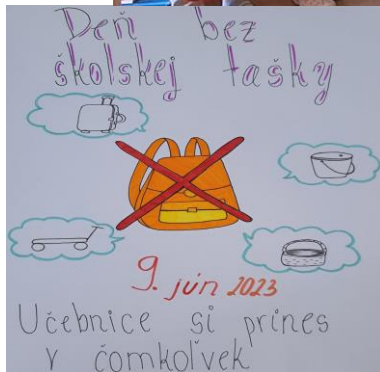 Deň bez
školskej tašky
9. jún 2023
Učebnice si prines
v čomkoľvek